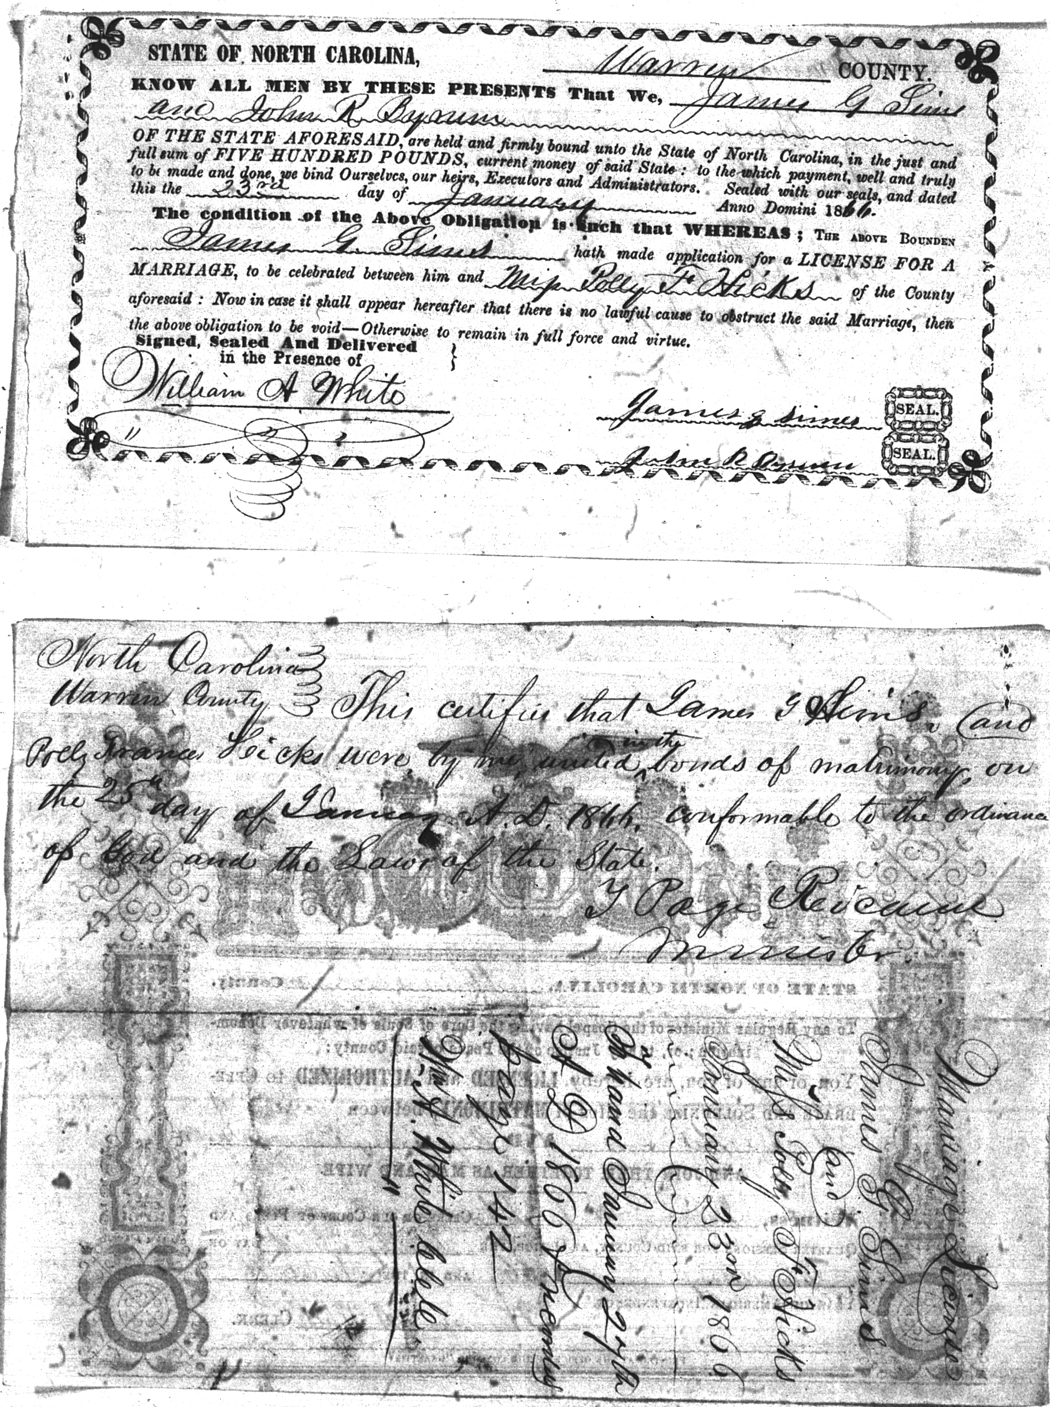 STATE OF NORTH CAROLINA, Warren COUNTY.
KNOW ALL MEN BY THESE PRESENTS That We, James G Sims
and John R Bynum
OF THE STATE AFORESAID, are held and firmly bound unto the State of North Carolina, in the just and
full sum of FIVE HUNDRED POUNDS, current money of said State: to the which payment, well and truly
to be made and done, we bind Ourselves, our heirs, Executors and Administrators. Sealed with our seals, and dated
this the 23rd day of January Anno Domini 1866.
The condition of the Above Obligation is such that WHEREAS; THE ABOVE BOUNDEN
James G. Sims hath made application for a LICENSE FOR A
MARRIAGE, to be celebrated between him and Miss Polly F. Hicks of the County
aforesaid: Now in case it shall appear hereafter that there is no lawful cause to obstruct the said Marriage, then
the above obligation to be void—Otherwise to remain in full force and virtue.
Signed, Sealed And Delivered
in the Presence of
William A White
James G Simes SEAL.
John R Bynum SEAL.
North Carolina
Warren County This certifies that James G Sims, and
Polly Frances Hicks were by me, united in the bonds of matrimony, on
the 25th day of January A.D. 1866, conformable to the ordinance
of God and the Laws of the State.
T Page Ricaud
Minister
Marriage License
James G Sims
and
Miss Polly F. Hicks
January 23rd 1866
January 27th
A D 1866
page 142
Wm A. White Clerk
STATE OF NORTH CAROLINA, County.
To any Regular Minister of the Gospel having the Cure of Souls of whatever Denom-
LICENSED and AUTHORIZED to CELE-
MAN AND WIFE.
CLERK.